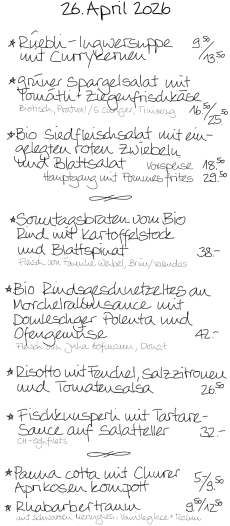 26. April 2026
* Rüebli-Ingwersuppe 9.50/
mit Currykernen 13.50
* grüner Spargelsalat mit
Tomätli + Ziegenfrischkäse
16.50/25.50
* Bio Siedfleischsalat mit ein-
gelegten roten Zwiebeln
und Blattsalat Vorspeise 18.50
Hauptgang mit Pommes frites 29.50
* Sonntagsbraten vom Bio
Rind mit Kartoffelstock
und Blattspinat 38.-
Fleisch von Familie
* Bio Rindsgeschnetzeltes an
Morchelrahmsauce mit
Domleschger Polenta und
Ofengemüse 42.-
Fleisch von Hofmann, Donat
* Risotto mit Fenchel, Salzzitronen
und Tomatensalsa 26.50
* Fischknusperli mit Tartare-
Sauce auf Salatteller 32.-
CH-
* Panna cotta mit Churer
Aprikosen kompott 5/9.50
* Rhabarbertraum 9.50/12.50
mit schwarzem Meringues, Vanilleglace + Rahm